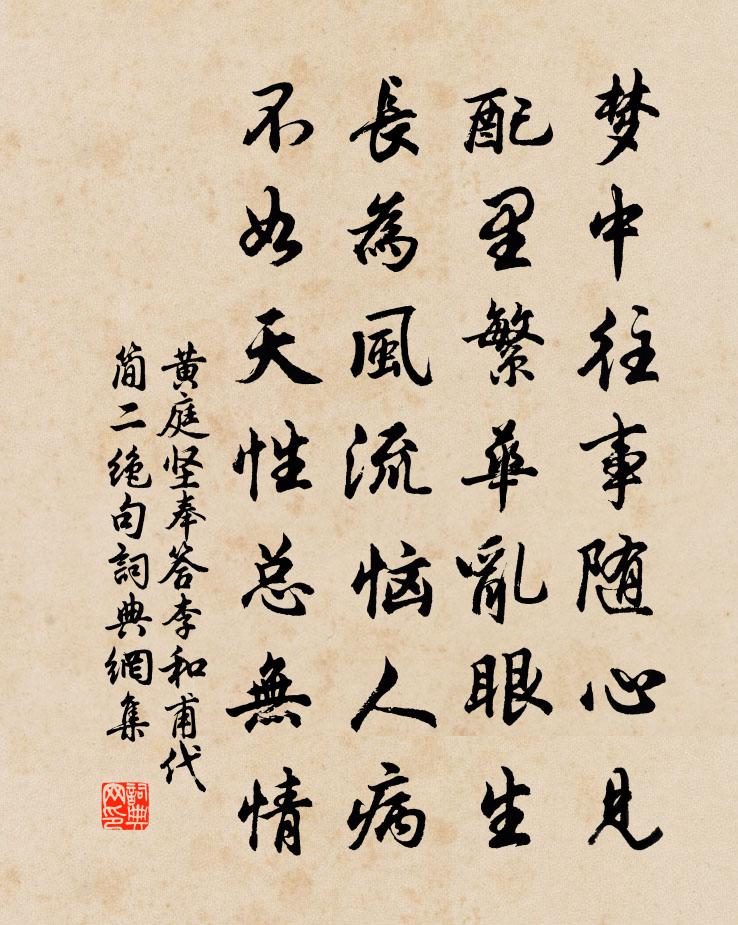 梦中往事随心見
配里繁華亂眼生
長為風流恼人病
不如天性总無情
黄庭坚奉答李和甫代
简二绝句詞典網集
詞典网印